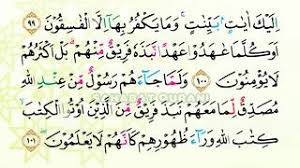 اِلَيْكَ اٰيٰتٍۢ بَيِّنٰتٍۚ وَمَا يَكْفُرُ بِهَآ اِلَّا الْفٰسِقُوْنَ ٩٩
اَوَكُلَّمَا عٰهَدُوْا عَهْدًا نَّبَذَهٗ فَرِيْقٌ مِّنْهُمْۗ بَلْ اَكْثَرُهُمْ
لَا يُؤْمِنُوْنَ ١٠٠ وَلَمَّا جَاۤءَهُمْ رَسُوْلٌ مِّنْ عِنْدِ اللّٰهِ
مُصَدِّقٌ لِّمَا مَعَهُمْ نَبَذَ فَرِيْقٌ مِّنَ الَّذِيْنَ اُوْتُوا الْكِتٰبَۙ
كِتٰبَ اللّٰهِ وَرَاۤءَ ظُهُوْرِهِمْ كَاَنَّهُمْ لَا يَعْلَمُوْنَ ١٠١